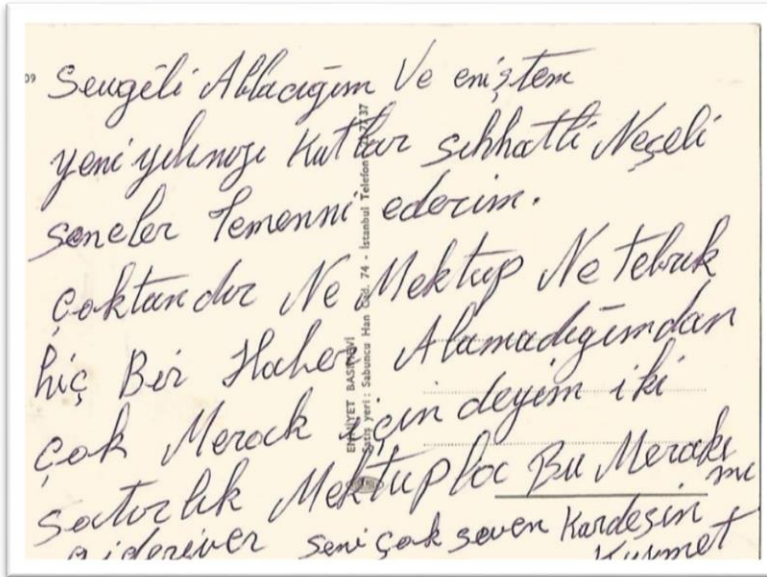 Sevgili Ablacığım Ve eniştem
yeni yılınızı Kutlar sıhhatli Neşeli
seneler Temenni ederim.
Çoktandır Ne Mektup Ne tebrik
hiç Bir Haber Alamadığımdan
çok Merak içindeyim iki
satırlık Mektupla Bu Merakı
mı
gideriver seni çok seven Kardeşin
Kısmet
EMNİYET BASIMEVİ
Satış yeri: Sabuncu Han Cad. 74 - İstanbul Telefon
77 37
09